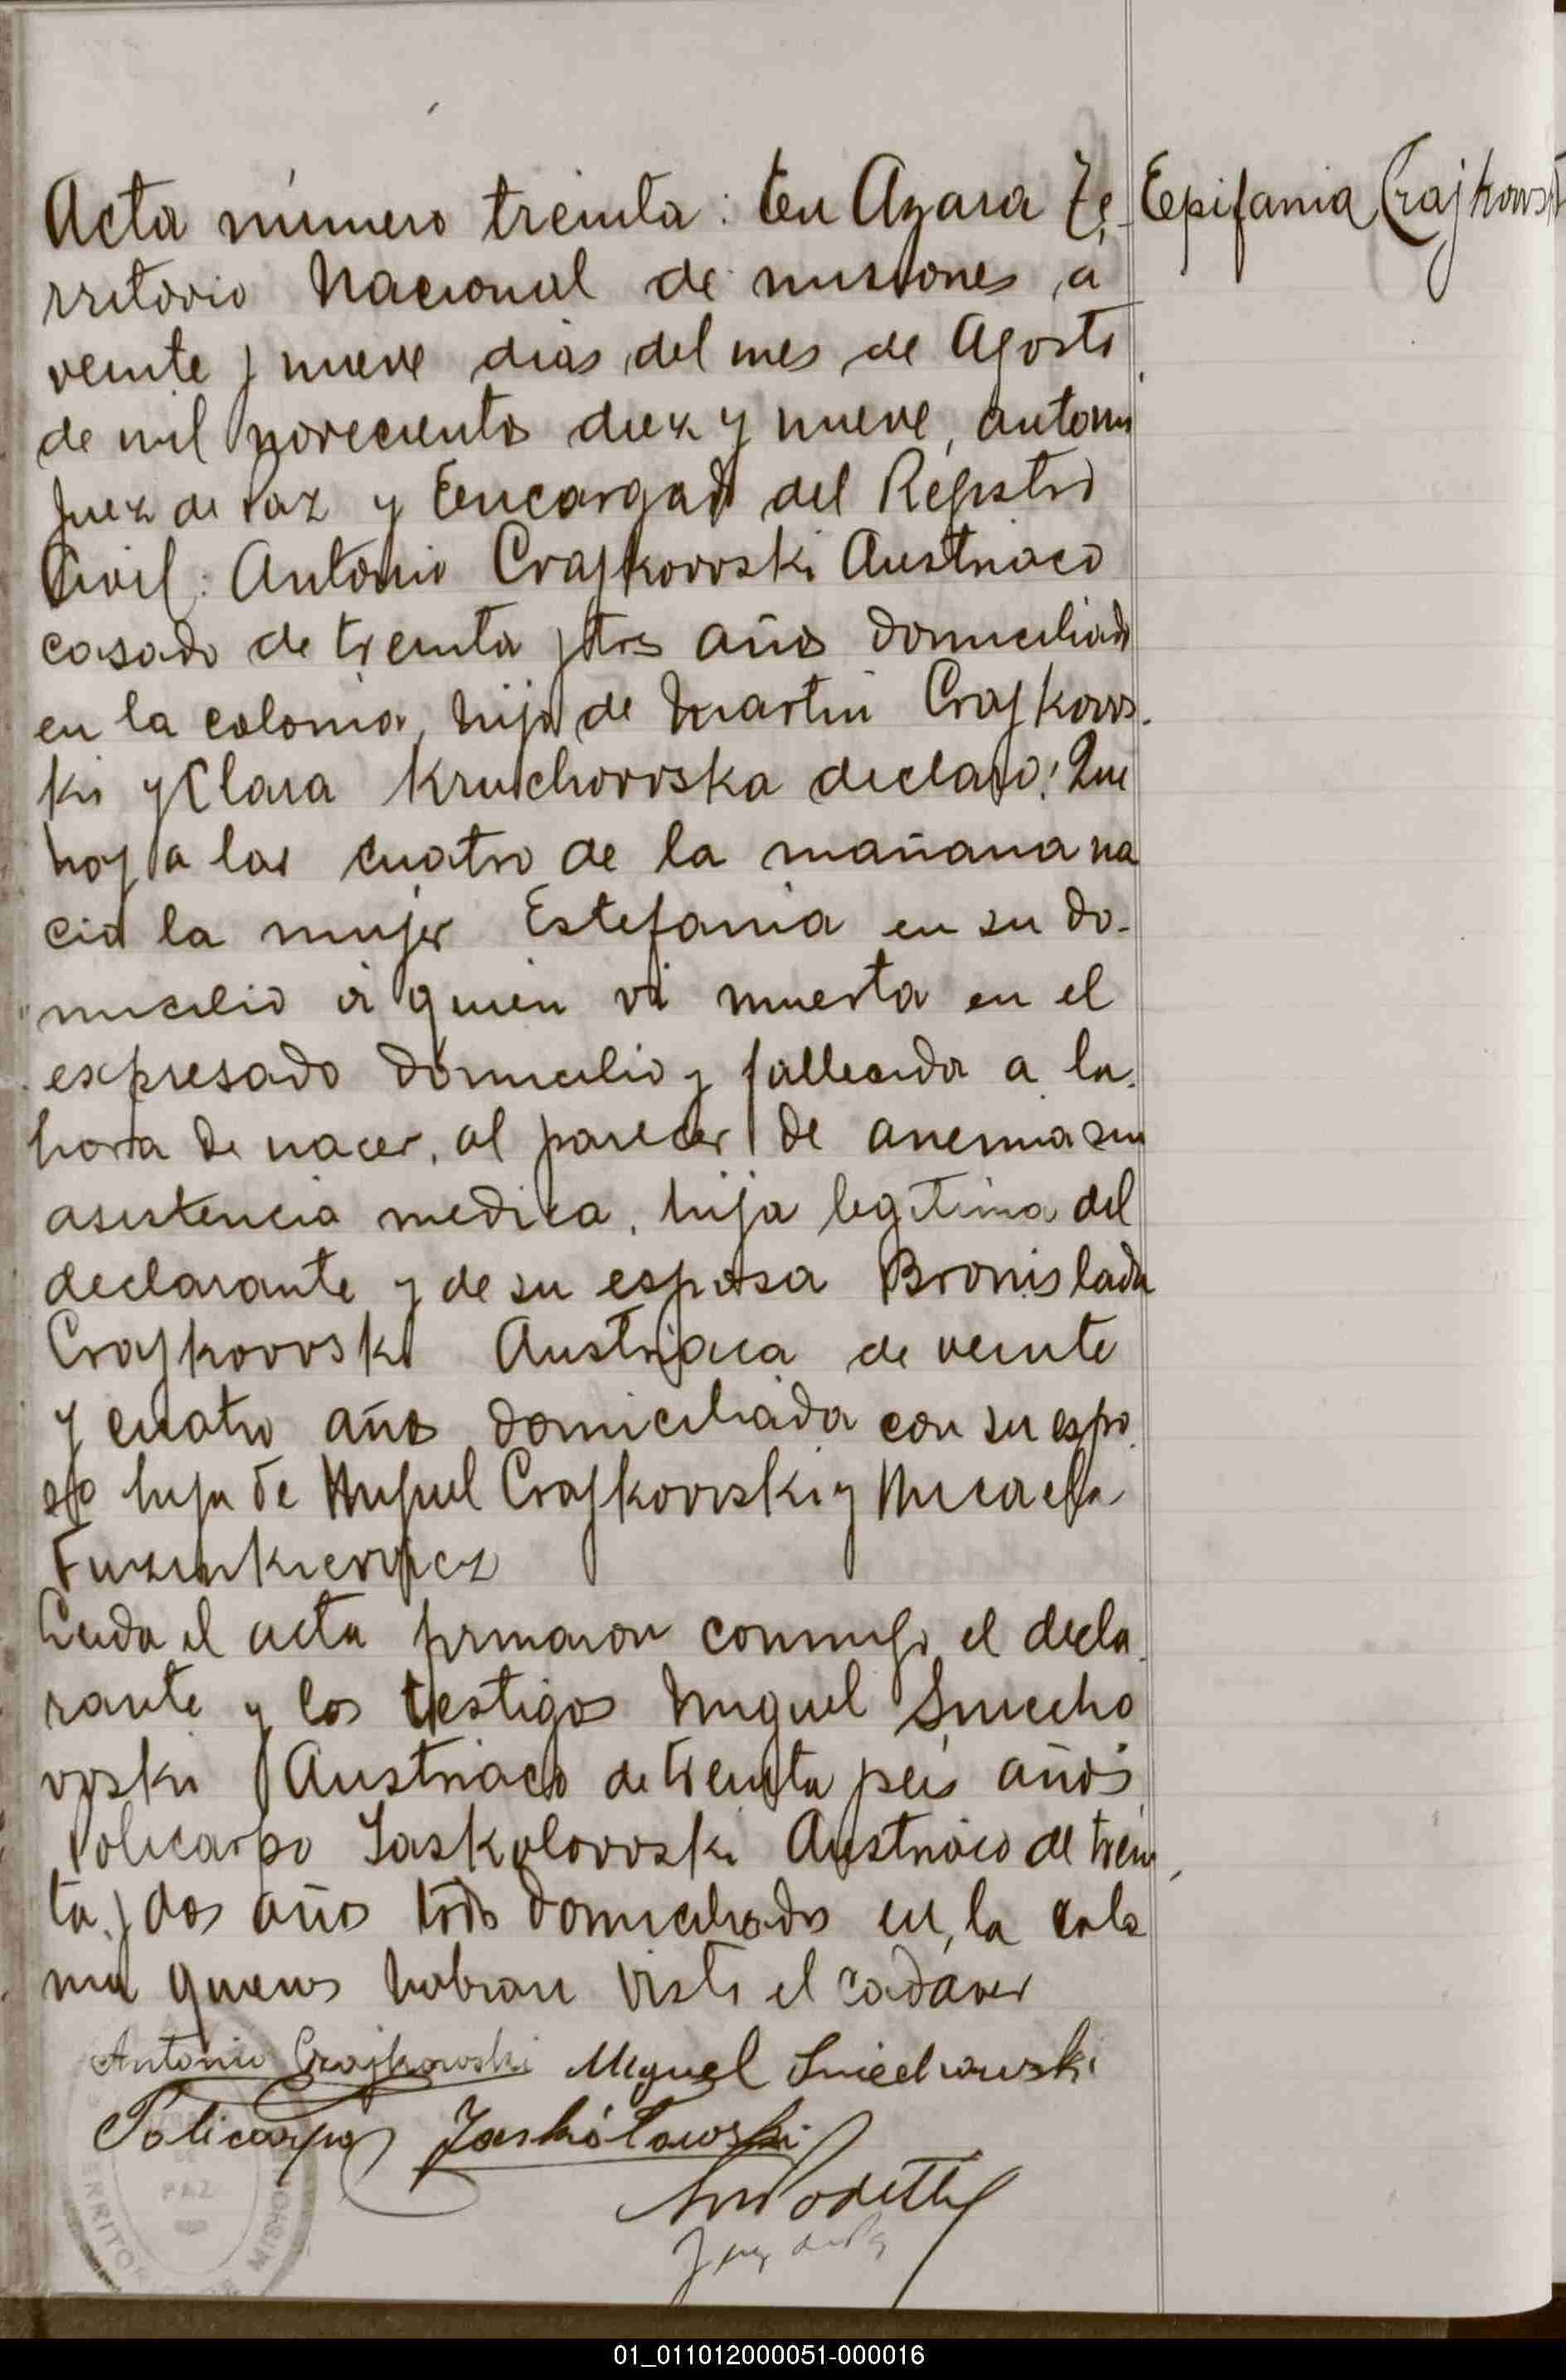 Acta número treinta: En Azara Te-
rritorio Nacional de misiones, a
veinte y nueve dias del mes de Agosto
de mil novecientos diez y nueve, ante mi
Juez de Paz y Encargado del Registro
Civil: Antonio Crajkovvski Austriaco
casado de treinta y tres años domiciliado
en la colonia, hijo de Martin Crajkovvs-
ki y Clara Kruchovvska declaro: Que
hoy a las cuatro de la mañana na
ció la mujer Estefania en su do-
micilio a quien vi muerta en el
expresado domicilio y fallecida a la
hora de nacer, al parecer de anemia sin
asistencia medica, hija legitima del
declarante y de su esposa Bronislada
Crajkovvski Austriaca de veinte
y cuatro años domiciliada con su espo
so hija de Miguel Crajkovvski y Micaela
Leida el acta firmaron conmigo el decla
rante y los testigos Miguel Smiecho
vvski Austriaco de treinta y seis años
Policarpo Jaskolovvski Austriaco de trein
ta y dos años todos domiciliados en la colo
nia quienes habian visto el cadaver
Antonio Crajkowski Miguel Smiechowski
Policarpo Jaskółowski
Juez de Paz
Epifania Crajkowsk
PAZ
TERRITORIO DE MISIONES
01_011012000051-000016